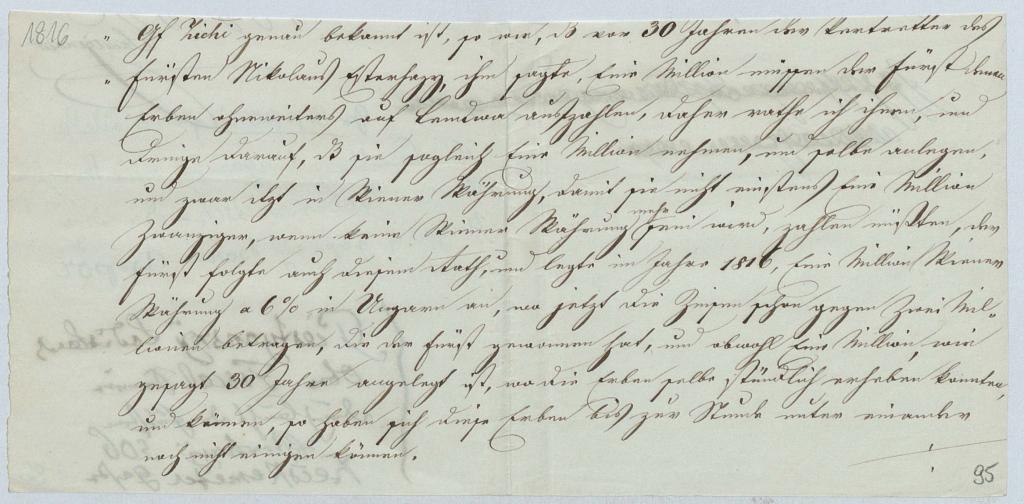 1816
" Gf Zichi genau bekannt ist, so wie, dß vor 30 Jahren der Vertretter des
" Fürsten Nikolaus Esterhazy, ihm sagte, Eine Million müssen der Fürst denen
Erben ohneweiters auf Lendwa auszahlen, daher rathe ich ihnen, und
dringe darauf, dß sie sogleich Eine Million nehmen, um selbe anlegen,
und zwar itzt in Wiener Währung, damit sie nicht einstens Eine Million
Zwanziger, wenn keine Wiener Währung mehr sein wird, zahlen müßten, der
Fürst folgte auch diesem Rath, und legte im Jahre 1816, Eine Million Wiener
Währung a 6% in Ungarn an, wo jetzt die Zinsen schon gegen Zwei Mil-
lionen betragen, die der Fürst gewonnen hat, und obwohl Eine Million, wie
gesagt 30 Jahre angelegt ist, wo die Erben selbe stündlich erheben konnten,
und können, so haben sich diese Erben bis zur Stunde unter einander
noch nicht einigen können.
95